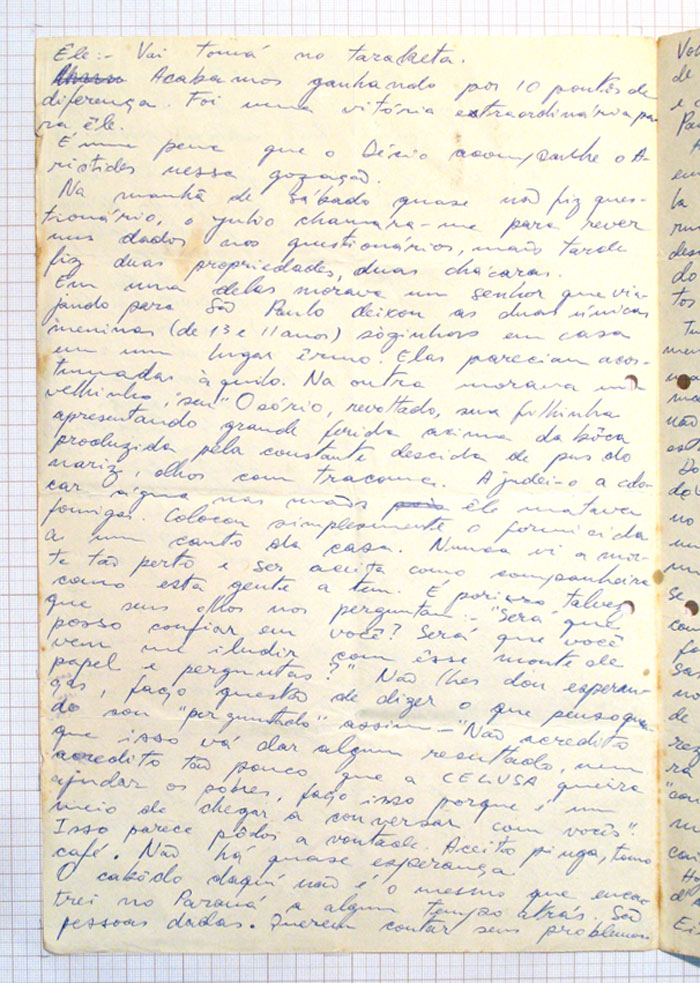 Ele:- Vai tomá no taraketa.
Acabamos ganhando por 10 pontos de
diferença. Foi uma vitória extraordinária pa-
ra êle.
É uma pena que o Décio acompanhe o A-
ristides nessa gozação.
Na manhã de sábado quase não fiz ques-
tionário, o Julio chamára-me para rever
uns dados nos questionários, mais tarde
fiz duas propriedades, duas chácaras.
Em uma delas morava um senhor que via-
jando para São Paulo deixou as duas únicas
meninas (de 13 e 11 anos) sòzinhas em casa
em um lugar êrmo. Elas pareciam acos-
tumadas àquilo. Na outra morava um
velhinho, "seu" Osório, revoltado, sua filhinha
apresentando grande ferida acima da bôca
produzida pela constante descida de pus do
nariz, olhos com tracoma. Ajudei-o a colo-
car água nas mãos pois êle matava
formigas. Colocou simplesmente o formicida
a um canto da casa. Nunca vi a mor-
te tão perto e ser aceita como companheira
como esta gente a tem. É por isso talvez
que seus olhos nos perguntam:- "Será que
posso confiar em você? Será que você
vem me iludir com êsse monte de
papel e perguntas?" Não lhes dou esperan-
ças, faço questão de dizer o que penso quan-
do sou "perguntado" assim - "Não acredito
que isso vá dar algum resultado, nem
acredito tão pouco que a CELUSA queira
ajudar os pobres, faço isso porque é um
meio de chegar a conversar com vocês".
Isso parece pôdos a vontade. Aceito pinga, tomo
café. Não há quase esperança.
O cabôclo daqui não é o mesmo que encon-
trei no Paraná a algum tempo atrás. São
pessoas dadas. Querem contar seus problemas